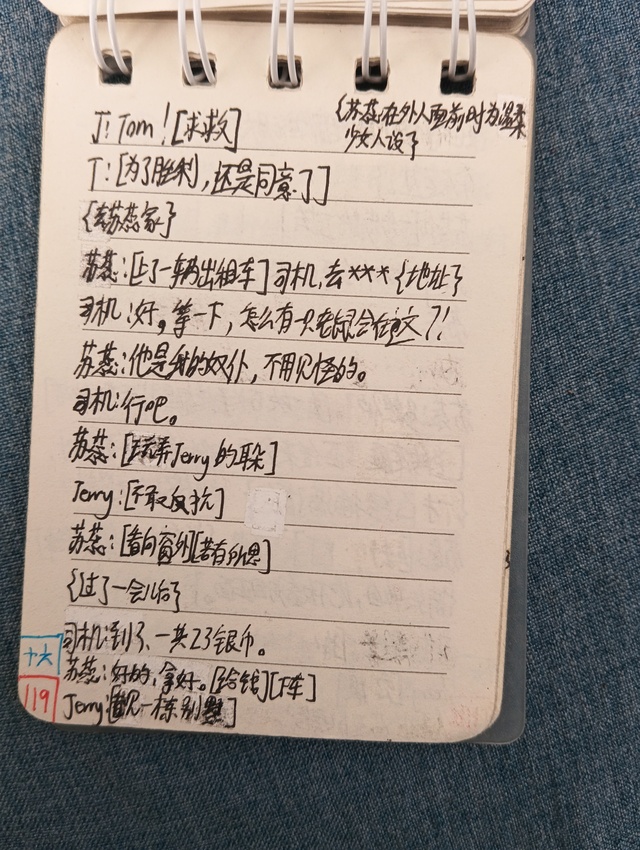 J: Tom! [求救]
{苏蕊在外人面前时为温柔
少女人设}
T: [为了胜利, 还是同意了]
{去苏蕊家}
苏蕊: [上了一辆出租车] 司机, 去*** {地址}
司机: 好。等一下, 怎么有一只老鼠会在这?!
苏蕊: 他是我的奴仆, 不用见怪的。
司机: 行吧。
苏蕊: [玩弄Jerry的耳朵]
Jerry: [不敢反抗]
苏蕊: [看向窗外][若有所思]
{过了一会儿后}
司机: 到了、一共23银币。
苏蕊: 好的, 拿好。[给钱][下车]
Jerry: [看见一栋别墅]
十六
119